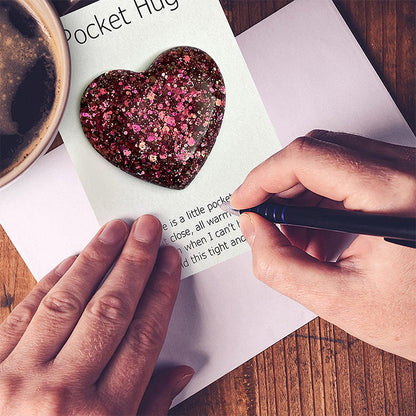 Pocket Hug
e is a little pocket
close, all warm
when I can't
d this tight and